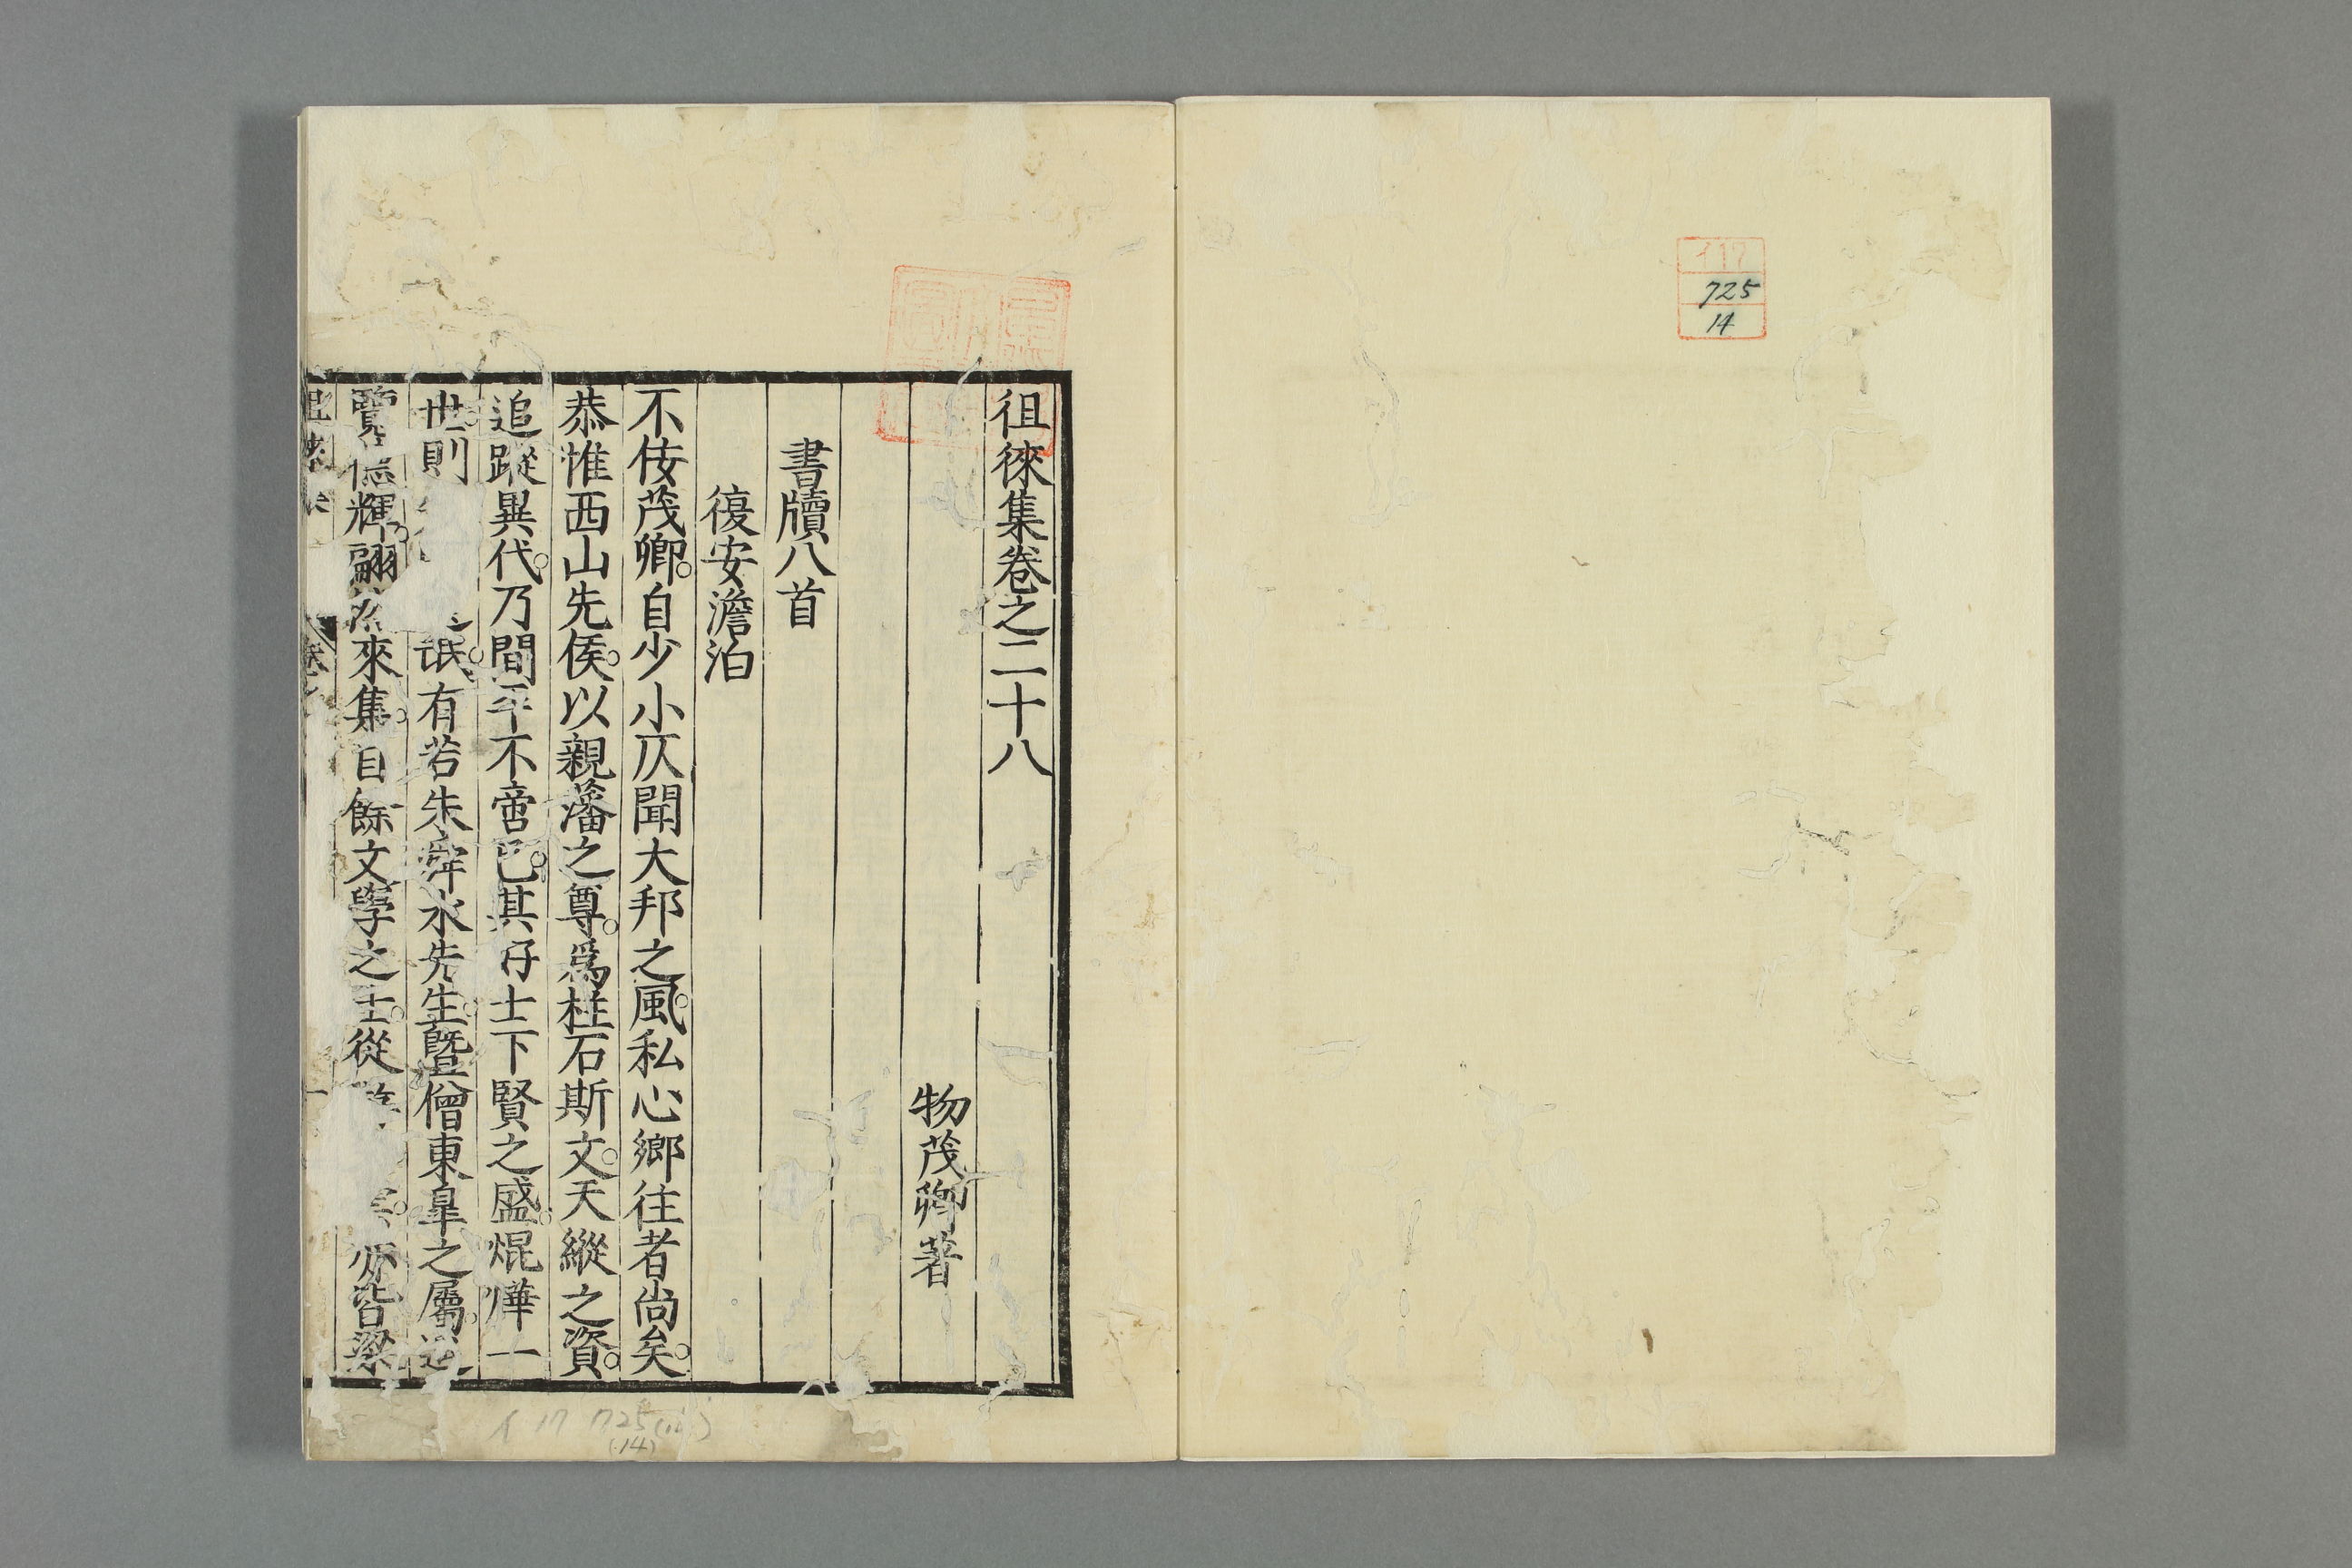 イ17
725
14
徂徠集卷之二十八
物茂卿著
書牘八首
復安澹泊
不佞茂卿。自少小仄聞大邦之風。私心鄉往者尚矣。
恭惟西山先侯。以親藩之尊。爲柱石斯文。天縱之資。
追蹤異代。乃間平不啻已。其好士下賢之盛。焜燁一
世則 有若朱舜水先生。曁僧東皐之屬。
覽德輝。翩 來集。自餘文學之士。從 亦皆梁
イ17 725(14)
(14)